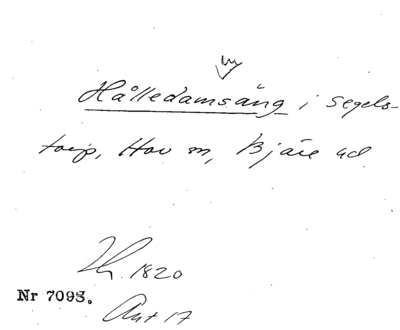 Hålledamsäng i Segels-
torp, Hov sn, Bjäre hd
Th. 1820
Nr 7093.
Ant 17